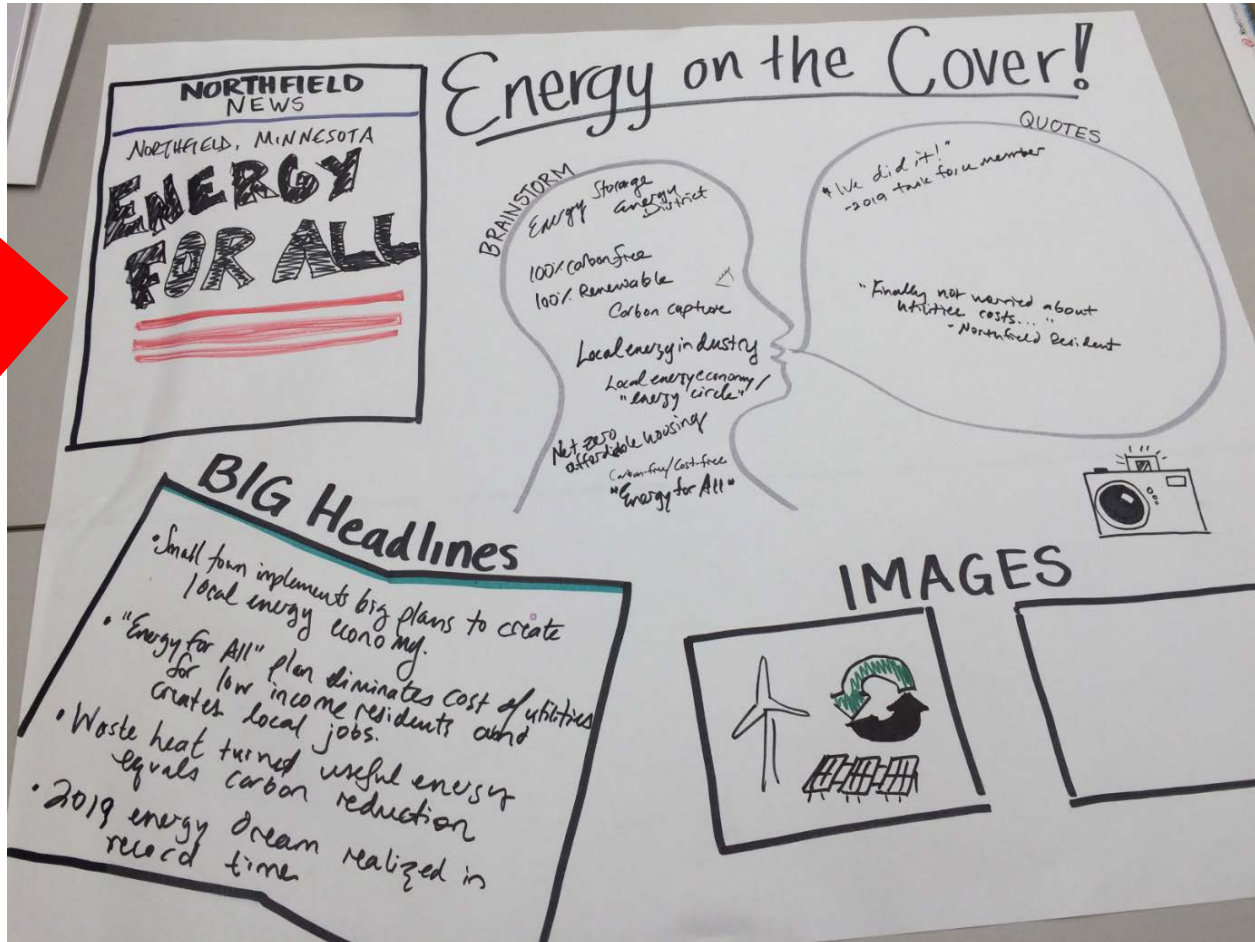 Energy on the Cover!
NORTHFIELD
NEWS
NORTHFIELD, MINNESOTA
ENERGY
FOR ALL
BRAINSTORM
Energy Storage
Energy
District
100% Carbon free
100% Renewable
Carbon capture
Local energy industry
Local energy economy/
"energy circle"
Net zero
affordable housing
Carbon-free/Cost-free
"Energy for All"
QUOTES
"We did it!"
-2019 task force member
"Finally not worried about
utilities costs..."
-Northfield Resident
BIG Headlines
• Small town implements big plans to create
local energy economy.
• "Energy for All" plan eliminates cost of utilities
for low income residents and
creates local jobs.
• Waste heat turned useful energy
equals carbon reduction
• 2019 energy dream realized in
record time
IMAGES